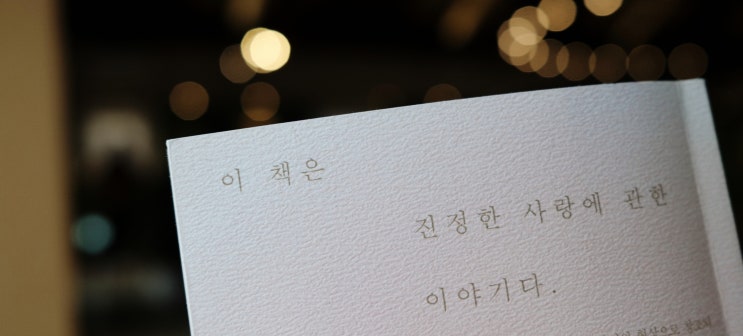 이 책은
진정한 사랑에 관한
이야기다.